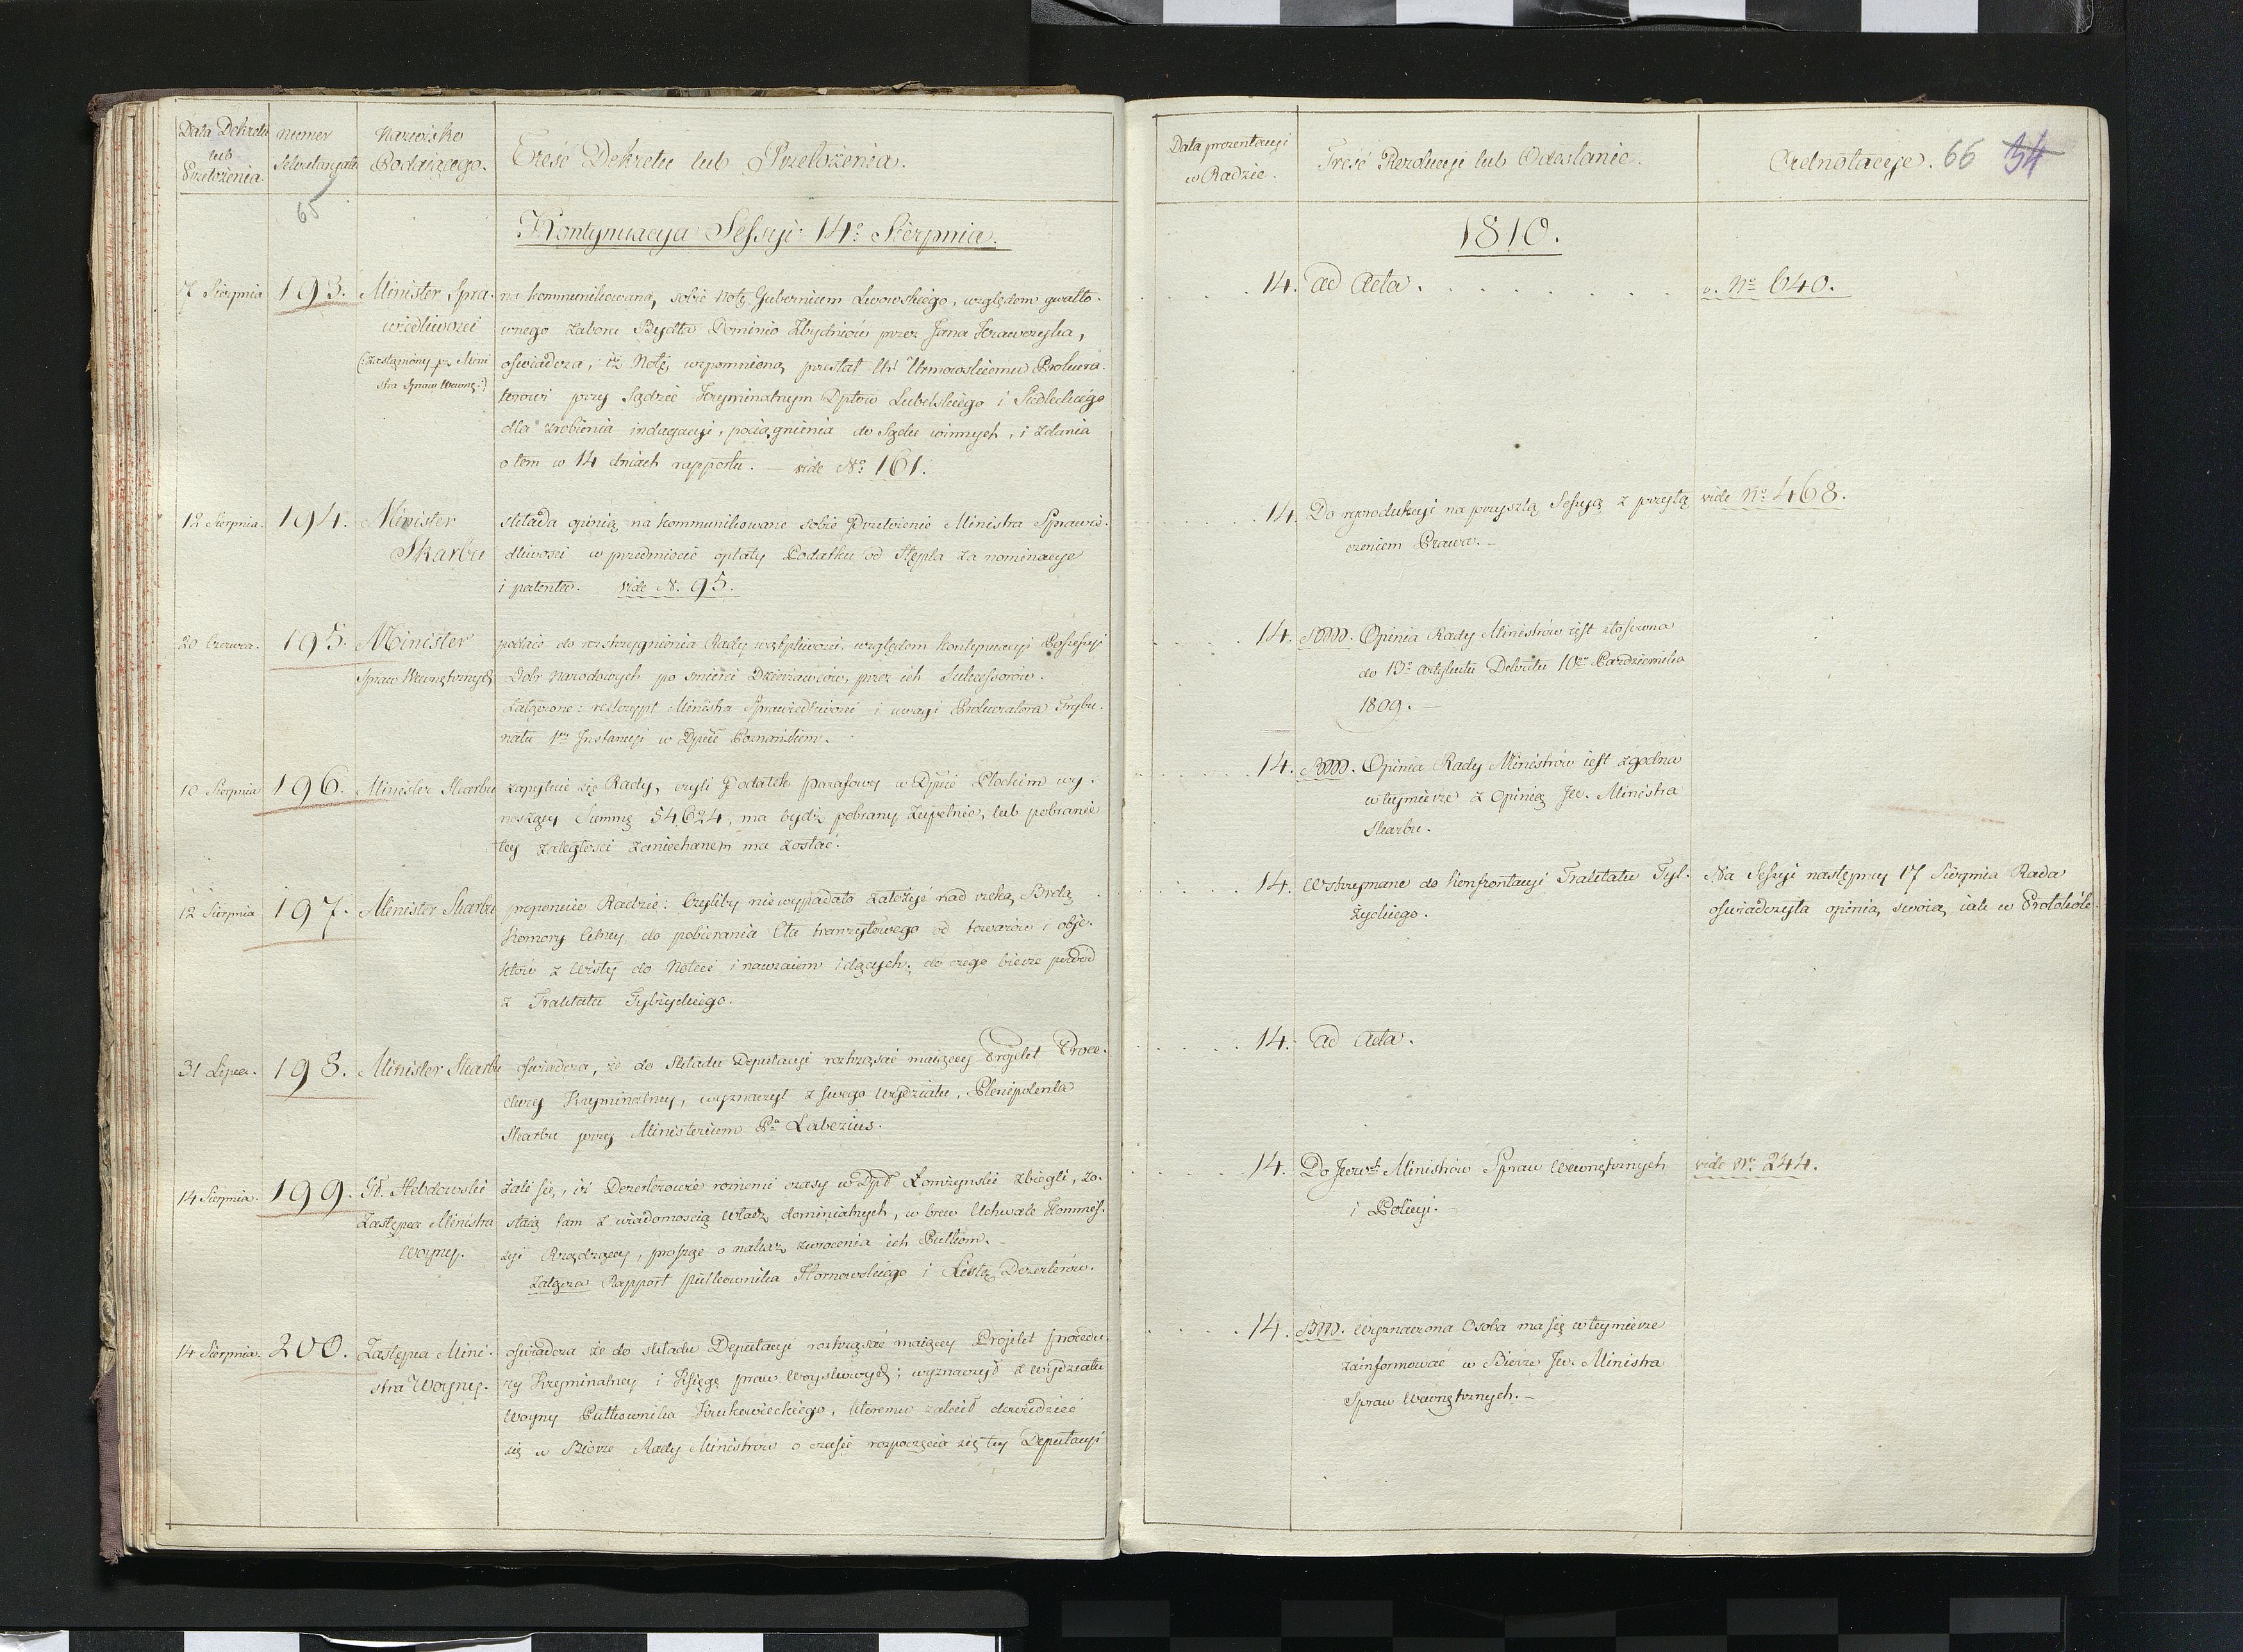 Data Dekretu
lub
Przełożenia.
numer
Sekretaryatu
65
Nazwisko
Podaiącego.
Treść Dekretu lub Przełożenia.
Kontynuacya Sessyi 14º Sierpnia.
7 Sierpnia
193.
Minister Spra-
wiedliwości
(:zastąpiony pr. Mini
stra Spraw Wewnę:)
na kommunikowaną sobie Notę Gubernium Lwowskiego, względem gwałto-
wnego zaboru Bydła Dominio Zbydniów przez Jana Krawczyka,
oświadcza, iż Notę wspomnioną przesłał Ur Urmowskiemu Prokura-
torowi przy Sądzie Kryminalnym Dptów Lubelskiego i Siedleckiego
dla zrobienia indagacyi, pociągnienia do Sądu winnych, i zdania
o tem w 14 dniach rapportu. — vide Nº 161.
12 Sierpnia.
194.
Minister
Skarbu
składa opinią na kommunikowane sobie Przełożenie Ministra Sprawie-
dliwości w przedmiocie opłaty Podatku od Stępla za nominacye
i patenta. vide N. 95.
20 Czerwca.
195.
Minister
Spraw Wewnętrznych
podaie do rozstrzygnienia Rady wątpliwości względem kontynuacyi Possessyi
Dobr Narodowych po śmierci Dzierżawców, przez ich Sukcessorów.
Załączone: reskrypt Ministra Sprawiedliwości i uwagi Prokuratora Trybu-
nału 1ey Instancyi w Dpcie Poznańskiem.
10 Sierpnia
196.
Minister Skarbu
zapytuie się Rady, czyli Podatek parafowy w Dpcie Płockim wy-
noszący Summę 54,624, ma bydź pobrany zupełnie, lub pobranie
tey zaległości zaniechanem ma zostać.
12 Sierpnia
197.
Minister Skarbu
proponuie Radzie: Czyliby niewypadało założyć nad rzeką Brdą
Komory Celney do pobierania Cła tranzytowego od towarów i obje-
któw z Wisły do Noteci i nawzaiem idących; do czego bierze powód
z Traktatu Tylżyckiego.
31 Lipca.
198.
Minister Skarbu
oświadcza, że do Składu Deputacyi roztrząsać maiącey Projekt Proce-
dury Kryminalney, wyznaczył z swego Wydziału, Plenipotenta
Skarbu przy Ministerium Pa Labezius.
14 Sierpnia.
199.
Gł. Hebdowski
Zastępca Ministra
Woyny.
żali się, iż Dezerterowie roznemi czasy w Dpt Łomżyński zbiegli, zo-
staią tam z wiadomością Władz dominialnych, w brew Uchwale Kommis-
syi Rządzącey, prosząc o nakaz zwrócenia ich Pułkom. -
Załącza Rapport pułkownika Hornowskiego i Listę Dezerterów.
14 Sierpnia.
200.
Zastępca Mini-
stra Woyny.
oświadcza że do składu Deputacyi roztrząsać maiącey Projekt procedu-
ry Kryminalney i Księgę praw Woyskowych; wyznaczył z Wydziału
Woyny Pułkownika Krukowieckiego, któremu zalecił dowiedzieć
się w Biórze Rady Ministrów o czasie rozpoczęcia się tey Deputacyi
Data prezentacyi
w Radzie.
Treść Rezolucyi lub Odesłanie.
Adnotacye. 66 54
1810.
14. ad Acta.
v. Nº 640.
14. Do reprodukcyi na przyszłą Sessyą z przyłą
czeniem Prawa. -
vide Nº 468.
14. RM. Opinia Rady Ministrów iest stosowna
do 13º artykułu Dekretu 10go Pazdziernika
1809. -
14. RM. Opinia Rady Ministrów iest zgodna
w teymierze z Opinią Jw. Ministra
Skarbu.
14. Wstrzymane do konfrontacyi Traktatu Tyl-
życkiego.
Na Sessyi następney 17 Sierpnia Rada
oświadczyła opinią swoią iak w Protokóle.
14. ad Acta.
14. Do Jww. Ministrów Spraw Wewnętrznych
i Policyi. -
vide Nº 244.
14. BM. Wyznaczona Osoba ma się w teymierze
zainformować w Biórze Jw. Ministra
Spraw Wewnętrznych. -